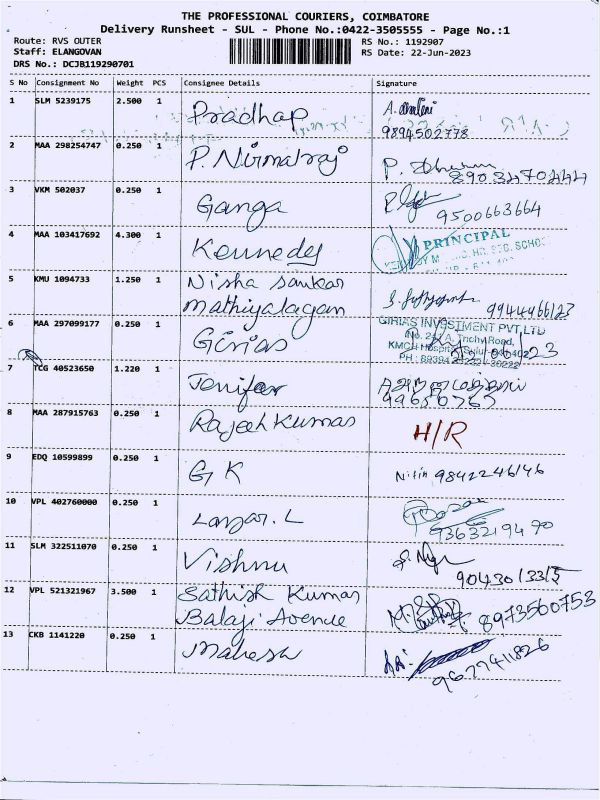 THE PROFESSIONAL COURIERS, COIMBATORE
Delivery Runsheet - SUL - Phone No.:0422-3505555 - Page No.:1
Route: RVS OUTER RS No.: 1192907
Staff: ELANGOVAN RS Date: 22-Jun-2023
DRS No.: DCJB119290701
S No Consignment No Weight PCS Consignee Details Signature
1 SLM 5239175 2.500 1 Pradhap A.
9894502778
2 MAA 298254747 0.250 1 P. Nirmalraj P.
8903470444
3 VKM 502037 0.250 1 Ganga
9500663664
4 MAA 103417692 4.300 1 Kennedy PRINCIPAL
HR. SEC. SCHOOL
5 KMU 1094733 1.250 1 Nisha Sankar
Mathiyalagan 9944466123
6 MAA 297099177 0.250 1 Girias GIRIAS INVESTMENT PVT LTD
Trichy Road,
KMCH Hospital, Sulur-641402
PH : 89394
7 TCG 40523650 1.220 1 Jenifer
8 MAA 287915763 0.250 1 Rajesh Kumar H/R
9 EDQ 10599899 0.250 1 G K Nitin 9842246146
10 VPL 402760000 0.250 1 Lanzar. L
9363219490
11 SLM 322511070 0.250 1 Vishnu
9043013315
12 VPL 521321967 3.500 1 Sathish Kumar
Balaji Avenue 8973560753
13 CKB 1141220 0.250 1 Mahesh
9677411826